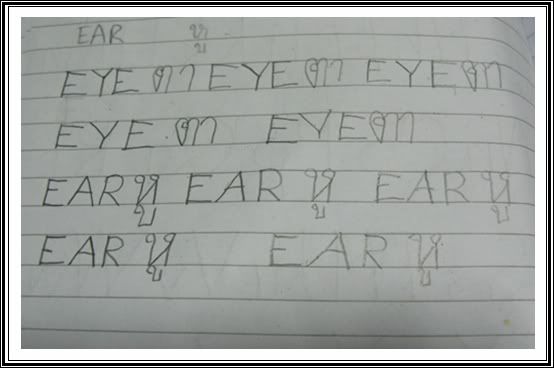 EAR หู
EYE ตา EYE ตา EYE ตา
EYE ตา EYE ตา
EAR หู EAR หู EAR หู
EAR หู EAR หู